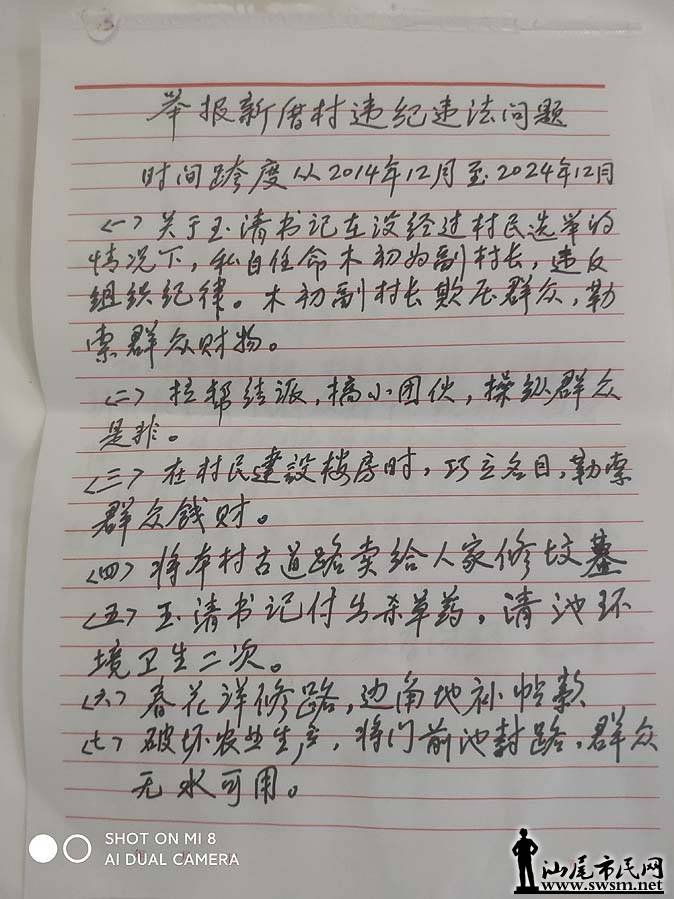 举报新厝村违纪违法问题
时间跨度从2014年12月至2024年12月
(一)关于玉清书记在没经过村民选举的
情况下，私自任命木初为副村长，违反
组织纪律。木初副村长欺压群众，勒
索群众财物。
(二)拉帮结派，搞小团伙，操纵群众
是非。
(三)在村民建設楼房时，巧立名目，勒索
群众钱财。
(四)将本村古道路卖给人家修坟墓
(五)玉清书记付出杀草药，清池环
境卫生二次。
(六)春花洋修路，边角地补偿款
(七)破坏农业生产，将门前池封路，群众
无水可用。
SHOT ON MI 8
AI DUAL CAMERA
汕尾市民网
www.swsm.net